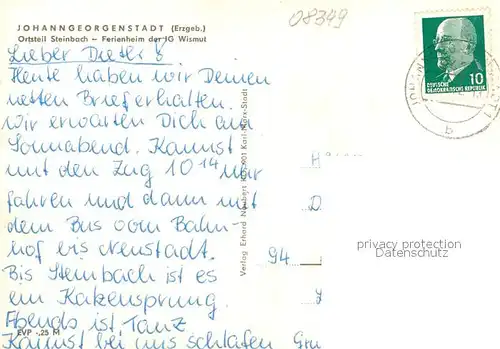 JOHANNGEORGENSTADT (Erzgeb.)
Ortsteil Steinbach – Ferienheim der IG Wismut
08349
10
DEUTSCHE
DEMOKRATISCHE REPUBLIK
b
Lieber Dieter!
Heute haben wir Deinen
netten Brief erhalten.
Wir erwarten Dich am
Sonnabend. Kannst
mit den Zug 10 14 Uhr
fahren und dann mit
dem Bus vom Bahn-
hof bis Neustadt.
Bis Steinbach ist es
ein Katzensprung.
Abends ist Tanz
Kannst bei uns schlafen Gru
Verlag Erhard Neubert KG, 9001 Karl-Marx-Stadt
H
D
94
privacy protection
Datenschutz
EVP -,25 M